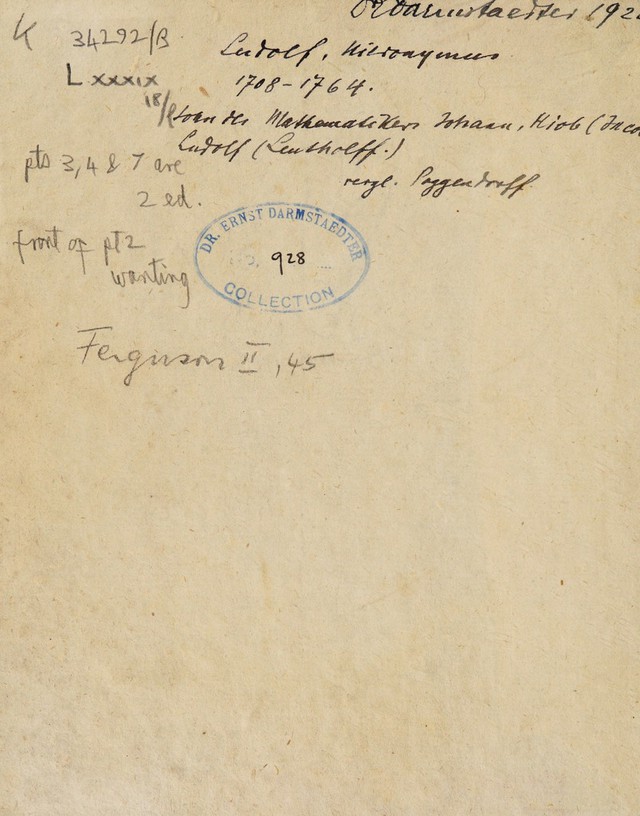 Dr Darmstaedter 192
K 34292/B
Ludolf, Hieronymus
Lxxxix
1708-1764.
18/
Sohn des Mathematikers Johann, Hiob (Jaco
Ludolf (Leutholff.)
pts 3, 4 & 7 are
2 ed.
vergl. Poggendorff.
front of pt 2
wanting
DR. ERNST DARMSTAEDTER
928
COLLECTION
Ferguson II, 45